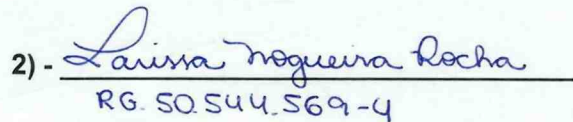 2) - Larissa Nogueira Rocha
RG. 50.544.569-4